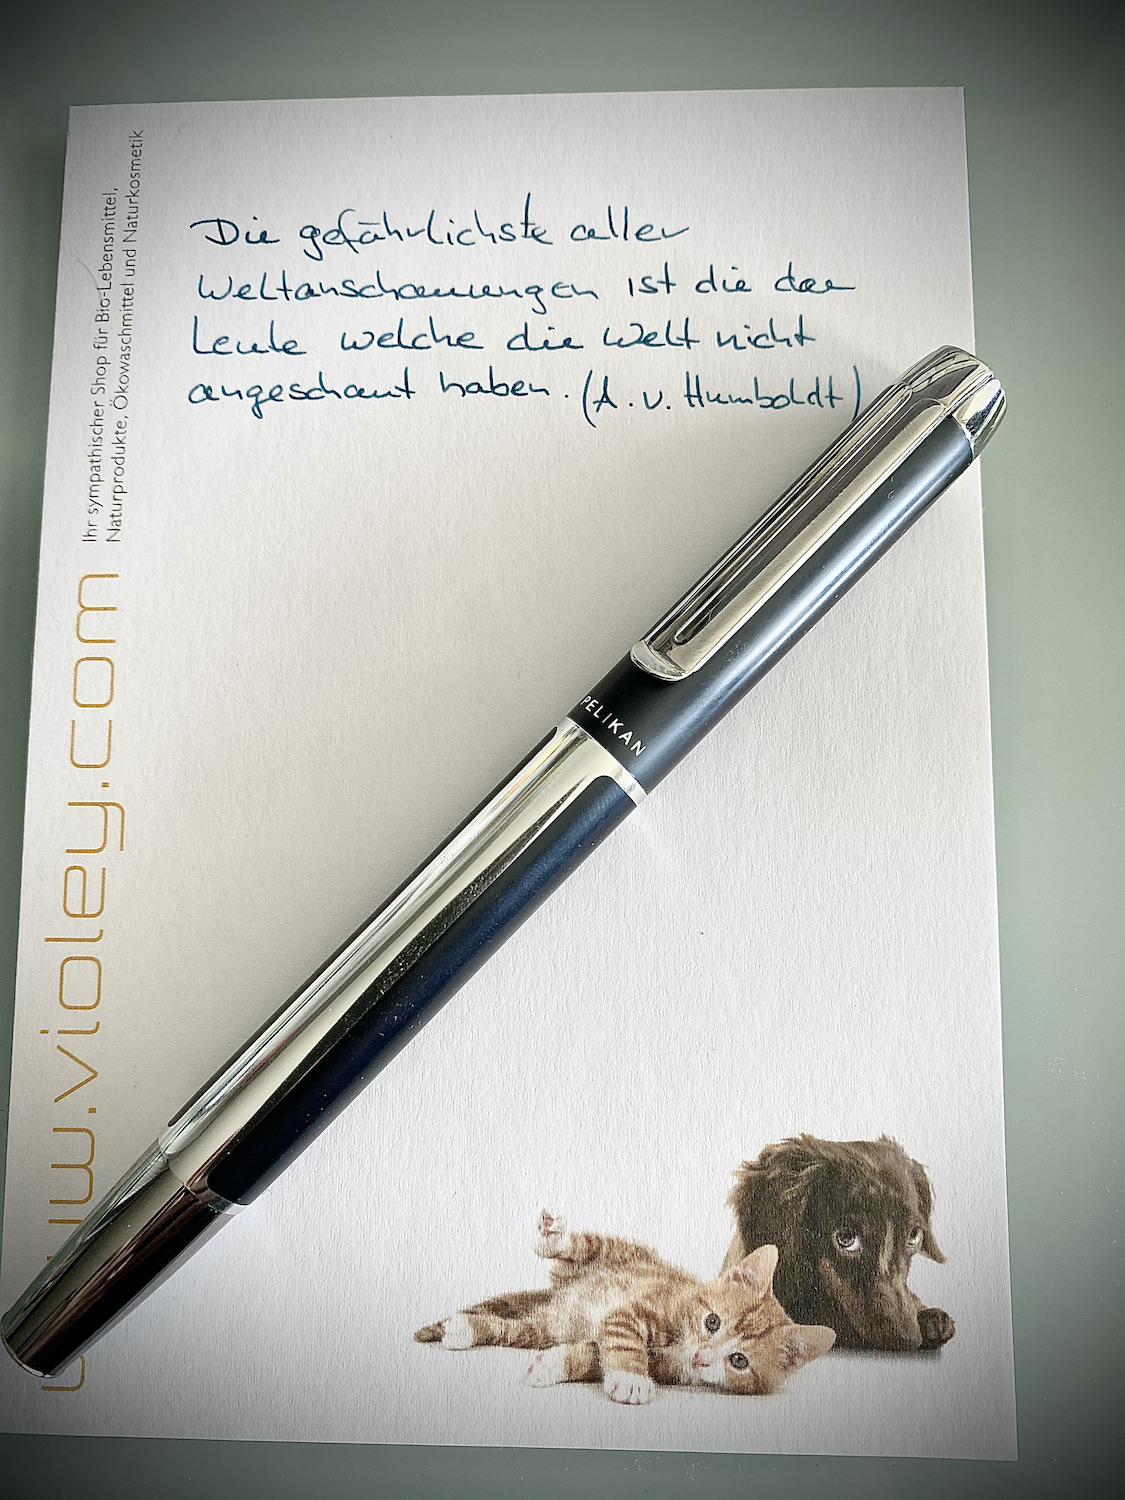 Die gefährlichste aller
Weltanschauungen ist die der
Leute welche die Welt nicht
angeschaut haben. (A. v. Humboldt)
Ihr sympathischer Shop für Bio-Lebensmittel,
Naturprodukte, Ökowaschmittel und Naturkosmetik
www.violey.com
PELIKAN